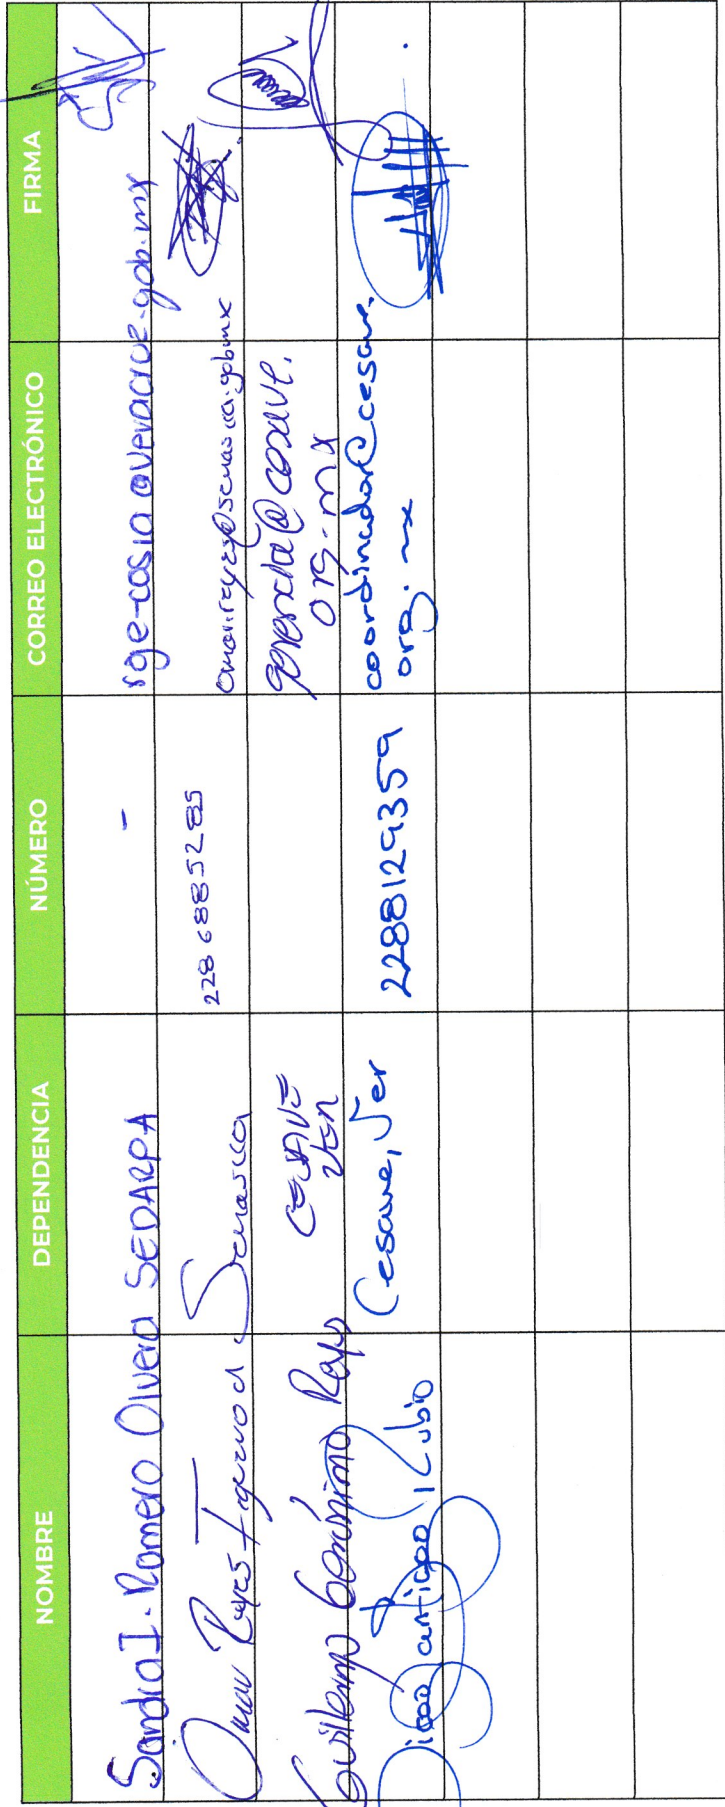 NOMBRE DEPENDENCIA NÚMERO CORREO ELECTRÓNICO FIRMA
Sandra I. Romero Olvera SEDARPA - @veracruz.gob.mx
Omar Reyes Senasica 2286885285 omar.reyes@senasica.gob.mx
Guillermo Gerónimo Reyes Ver gerencia@cosave.
org.mx
Diego Antigo Rubio Cesave, Ver 2288129359 coordinador@cesave.
org.mx